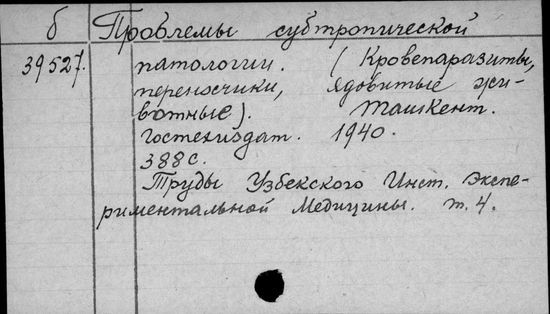 б Проблемы субтропической
39527. патологии. (Кровепаразиты,
переносчики, ядовитые жи-
вотные). Ташкент.
Гостехиздат. 1940.
388с.
Труды Узбекского Инст. Экспе-
риментальной Медицины. т. 4.